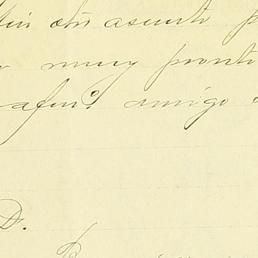 otro asunto
muy pronto
afmo. amigo
D.